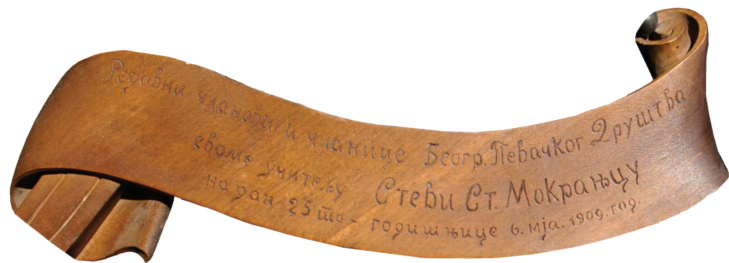 Редовни чланови и чланице Беогр. Певачког Друштва
своме учитељу Стеви Ст. Мокрањцу
на дан 25 то - годишњице 6. мја. 1909. год.